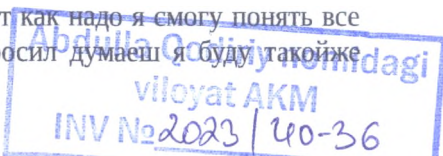 т как надо я смогу понять все
осил думаеш я буду такойже
Abdulla Qodiriy nomidagi
viloyat AKM
INV №2023/40-36